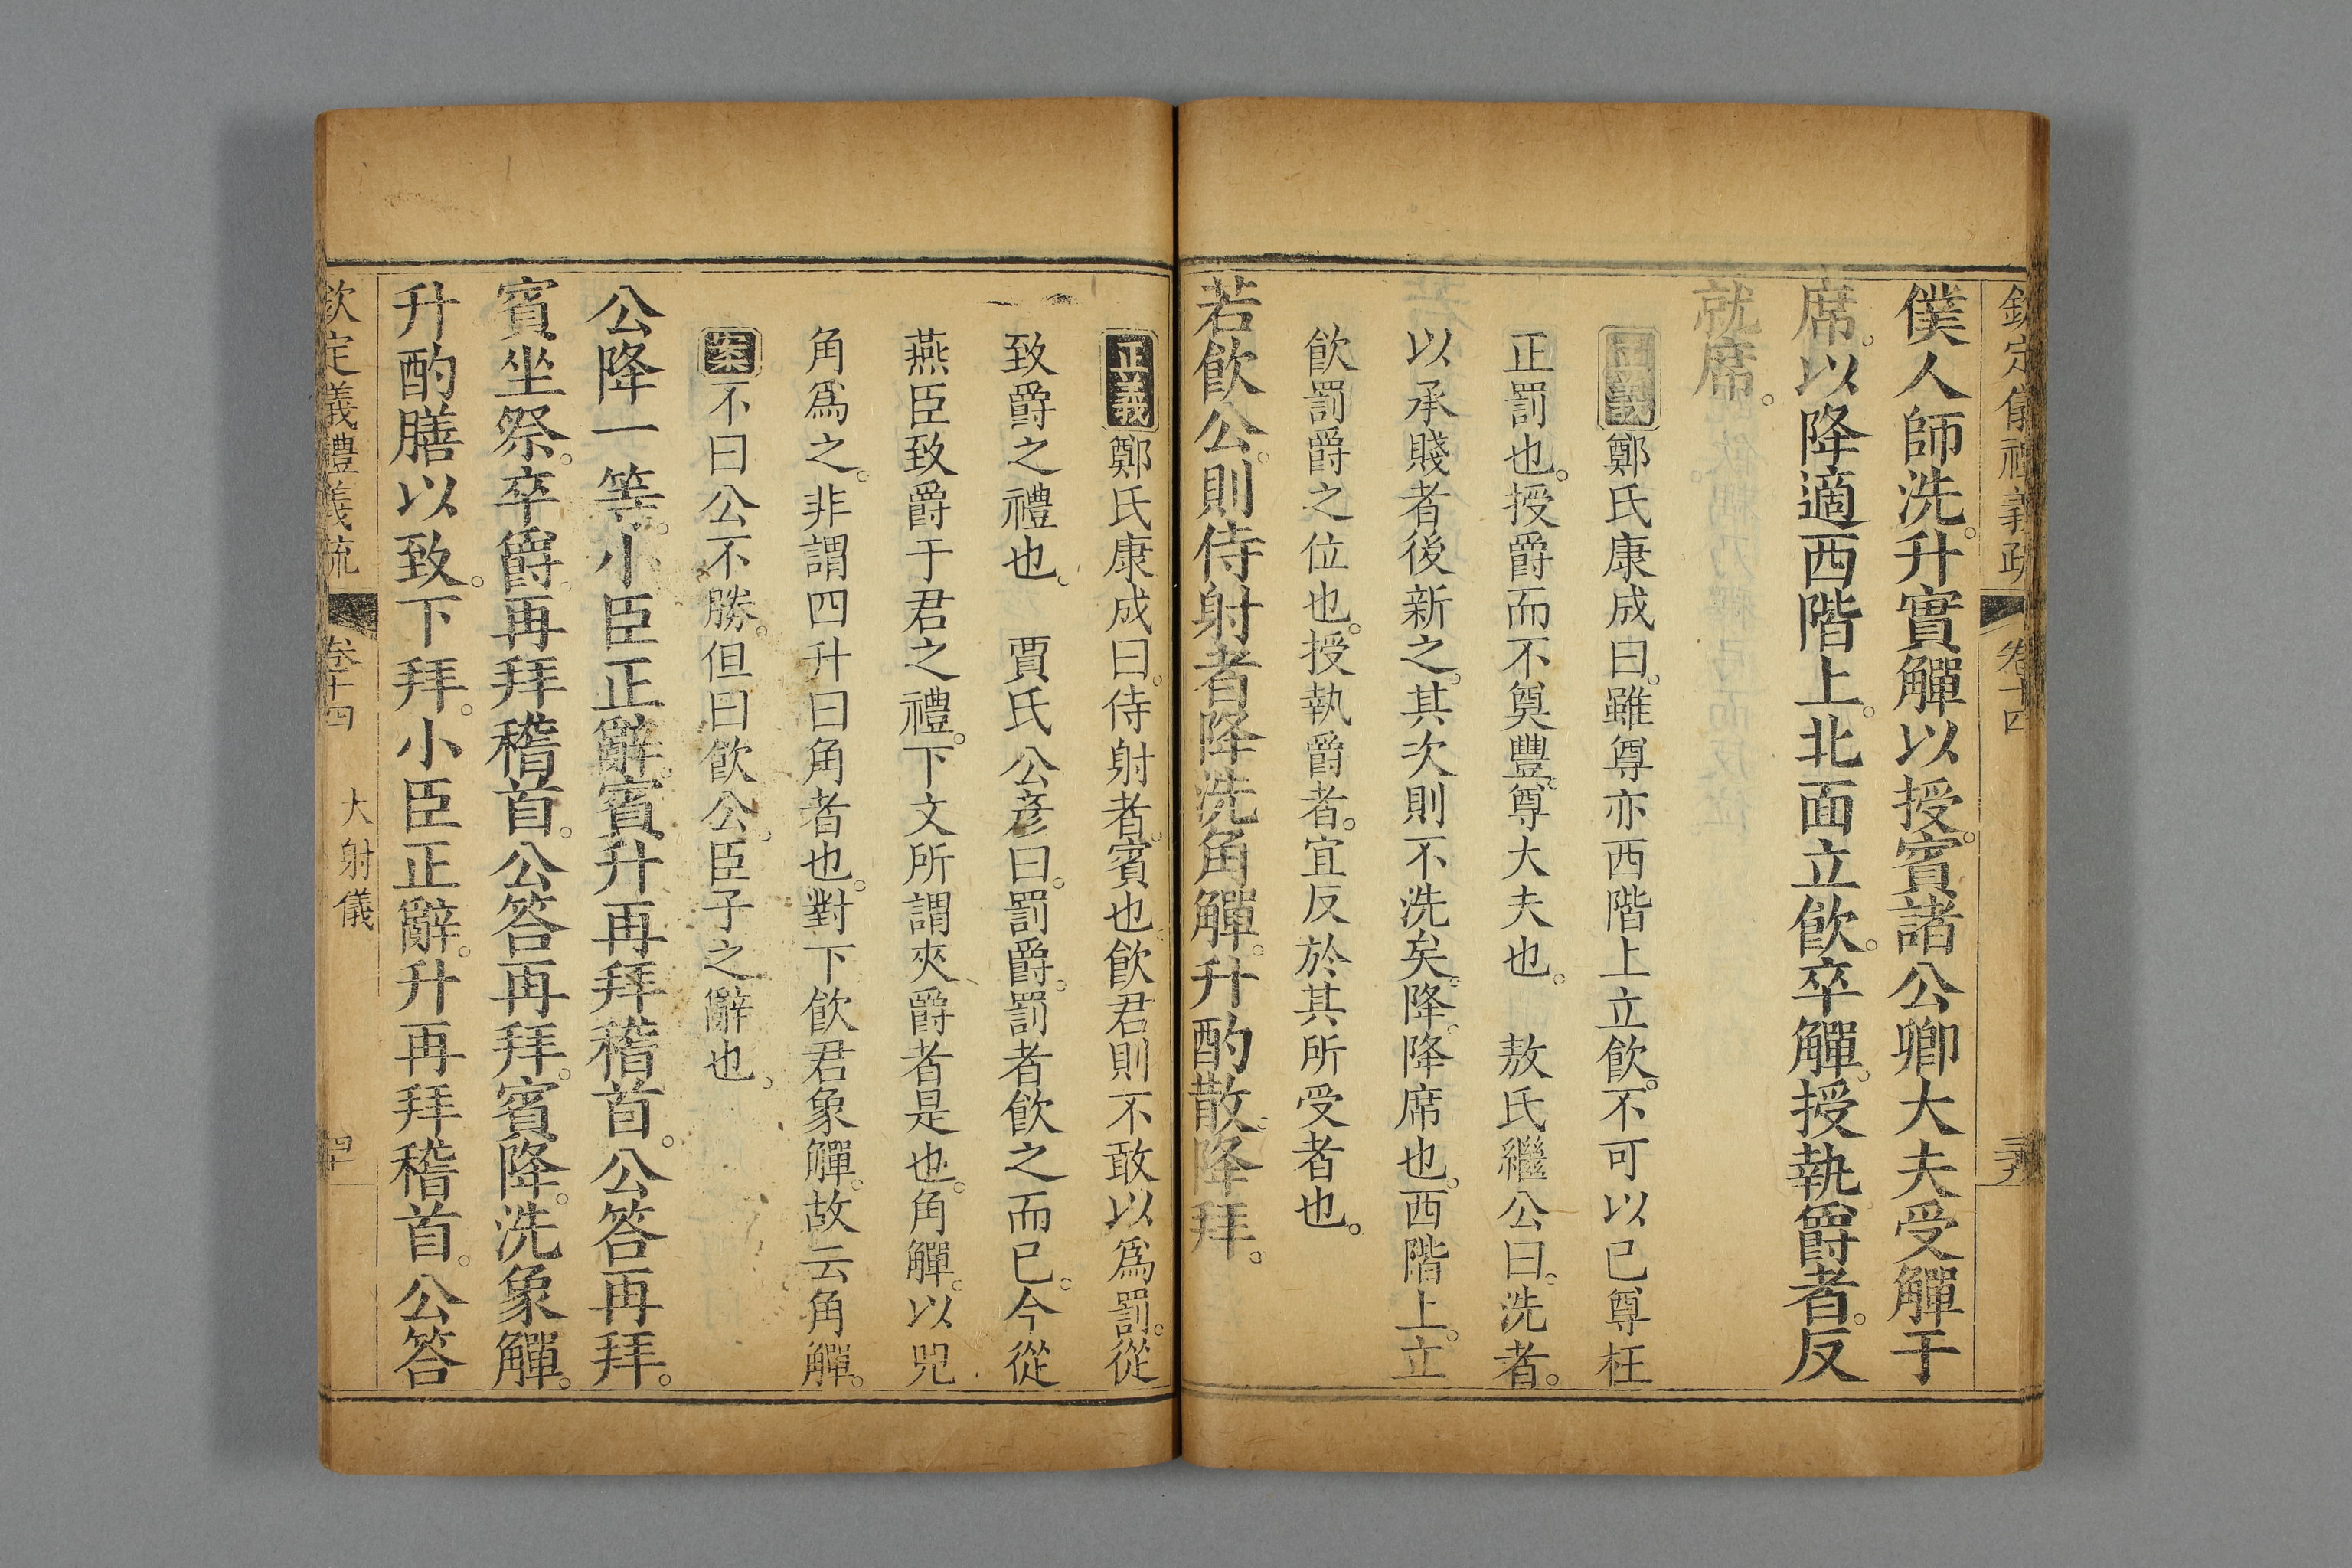 欽定儀禮義疏 卷十四
僕人師洗。升實觶以授。賓諸公卿大夫受觶于
席。以降適西階上。北面立飲。卒觶。授執爵者。反
就席。
正義鄭氏康成曰。雖尊亦西階上立飲。不可以已尊枉
正罰也。授爵而不奠豐。尊大夫也。 敖氏繼公曰。洗者。
以承賤者後新之。其次則不洗矣。降。降席也。西階上。立
飲罰爵之位也。授執爵者。宜反於其所受者也。
若飲公。則侍射者降洗角觶。升酌散。降拜。
正義鄭氏康成曰。侍射者。賓也飲君則不敢以爲罰。從
致爵之禮也。 賈氏公彦曰。罰爵。罰者飲之而已。今從
燕臣致爵于君之禮。下文所謂夾爵者是也。角觶。以兕
角爲之。非謂四升曰角者也。對下飲君象觶。故云角觶。
案不曰公不勝。但曰飲公。臣子之辭也。
公降一等。小臣正辭。賓升再拜稽首。公答再拜。
賓坐祭。卒爵。再拜稽首。公答再拜。賓降。洗象觶。
升酌膳以致。下拜。小臣正辭。升再拜稽首。公答
欽定儀禮義疏 卷十四 大射儀